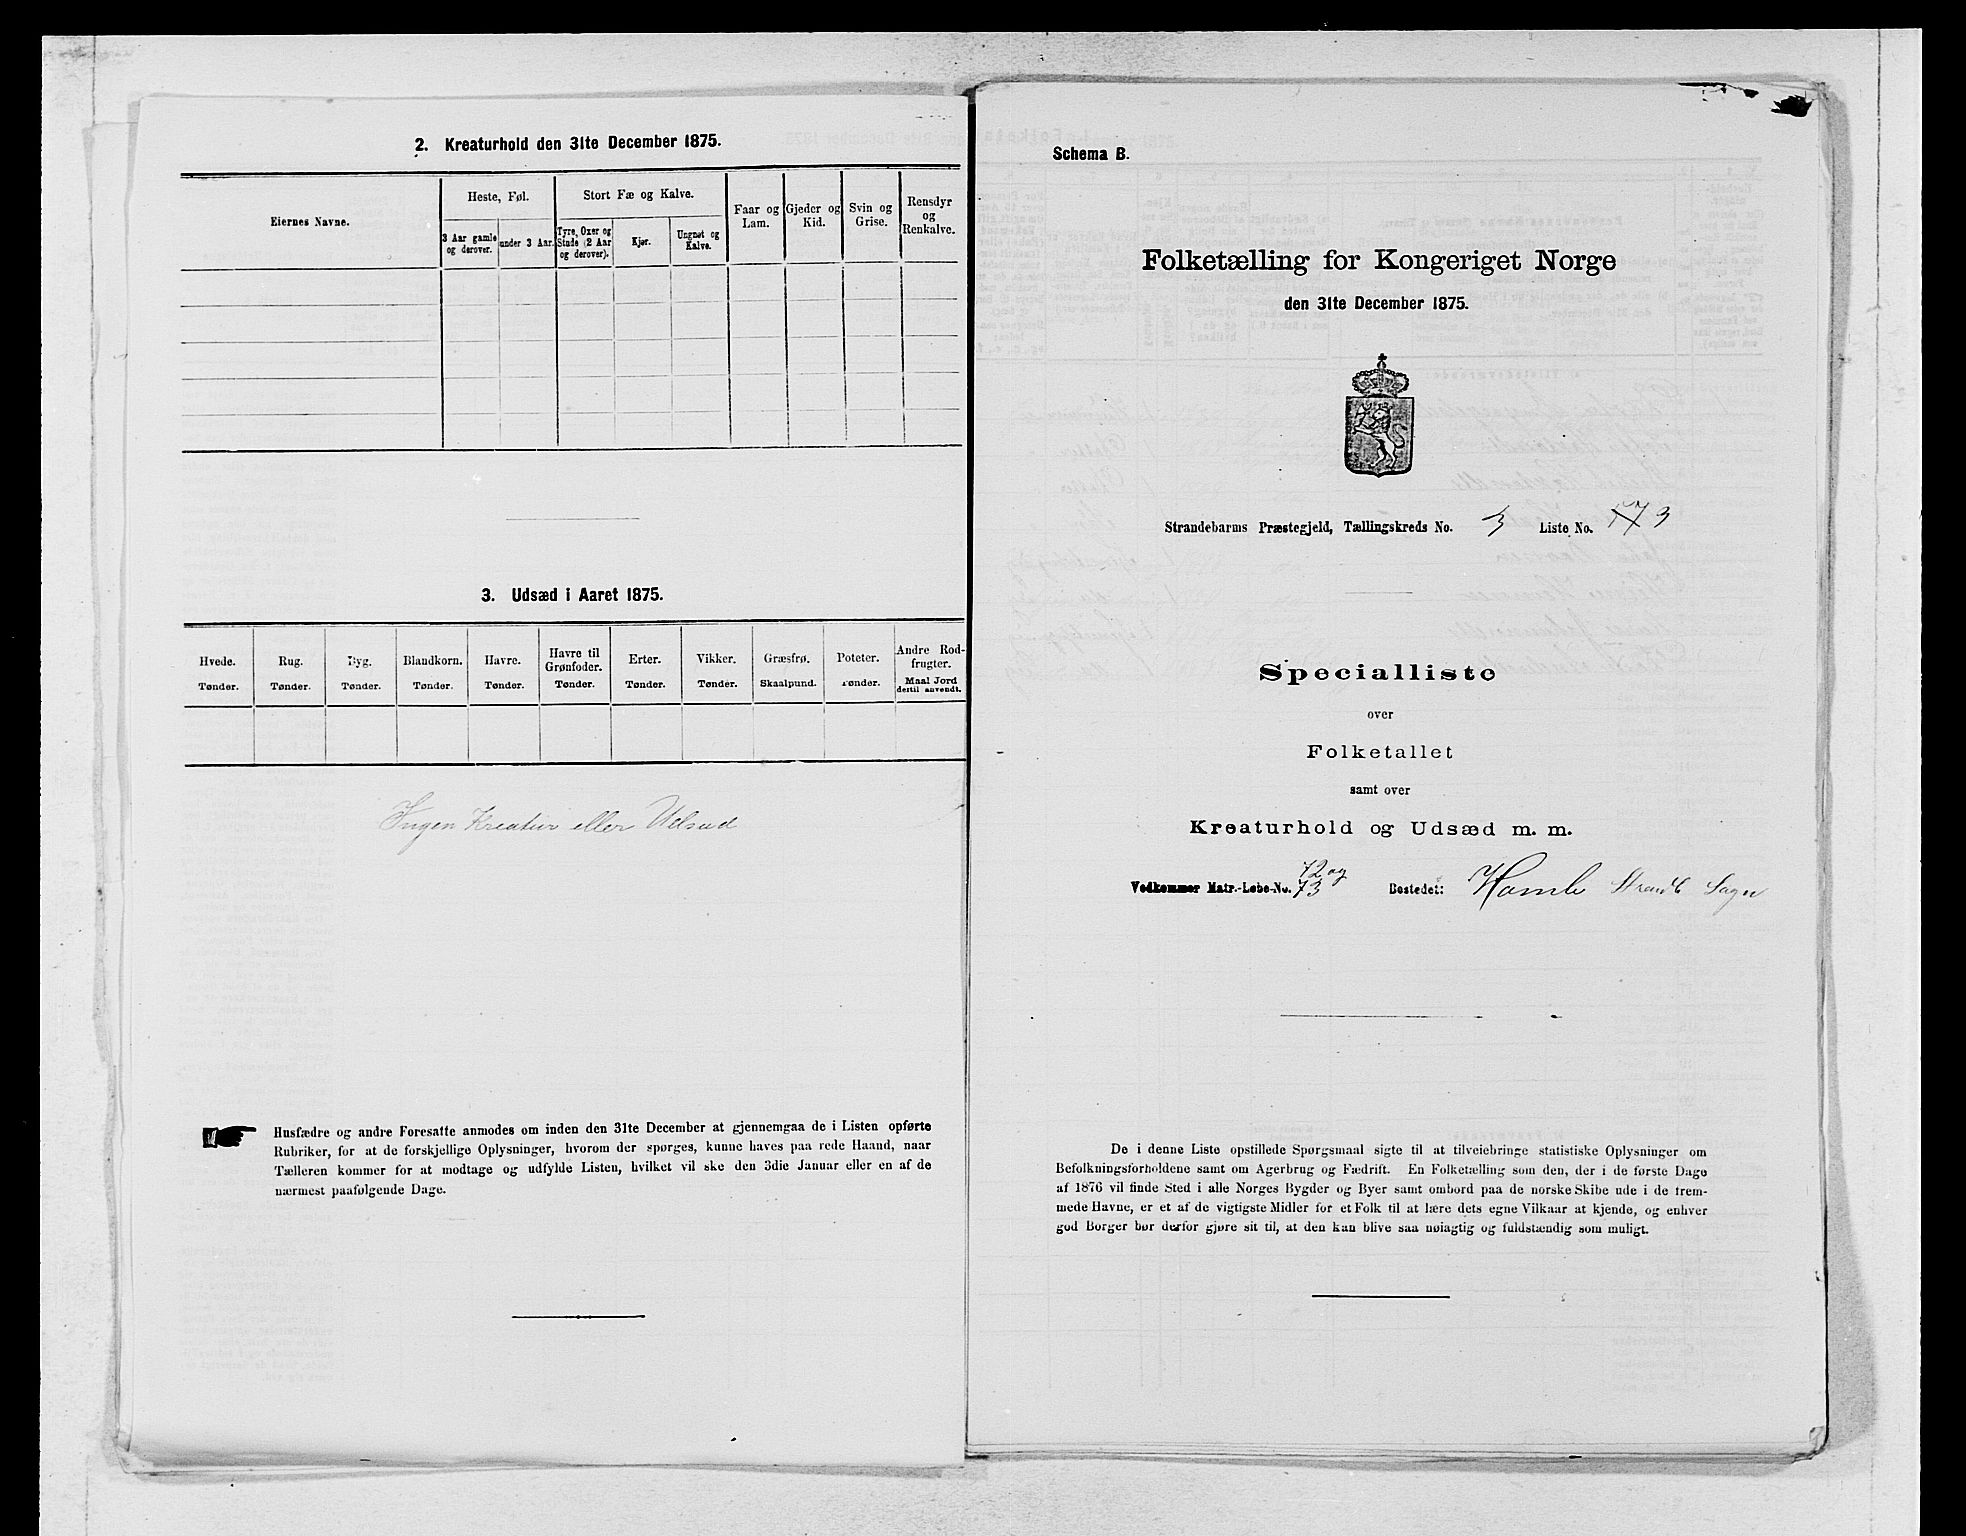 2. Kreaturhold den 31te December 1875.
Eiernes Navne.
Heste, Føl.
3 Aar gamle og derover.
under 3 Aar.
Stort Fæ og Kalve.
Tyre, Oxer og Stude (2 Aar og derover).
Kjør.
Ungnøt og Kalve.
Faar og Lam.
Gjeder og Kid.
Svin og Grise.
Rensdyr og Renkalve.
3. Udsæd i Aaret 1875.
Hvede. Tønder.
Rug. Tønder.
Byg. Tønder.
Blandkorn. Tønder.
Havre. Tønder.
Havre til Grønfoder. Tønder.
Erter. Tønder.
Vikker. Tønder.
Græsfrø. Skaalpund.
Poteter. Tønder.
Andre Rodfrugter. Maal Jord dertil anvendt.
Ingen Kreatur eller Udsæd
Husfædre og andre Foresatte anmodes om inden den 31te December at gjennemgaa de i Listen opførte
Rubriker, for at de forskjellige Oplysninger, hvorom der spørges, kunne haves paa rede Haand, naar
Tælleren kommer for at modtage og udfylde Listen, hvilket vil ske den 3die Januar eller en af de
nærmest paafølgende Dage.
Schema B.
Folketælling for Kongeriget Norge
den 31te December 1875.
Strandebarms Præstegjeld, Tællingskreds No. 3 Liste No. 3
Specialliste
over
Folketallet
samt over
Kreaturhold og Udsæd m. m.
72 og
Vedkommer Matr.-Løbe-No. 73 Bostedet: Hamle Strandb Sogn
De i denne Liste opstillede Spørgsmaal sigte til at tilveiebringe statistiske Oplysninger om
Befolkningsforholdene samt om Agerbrug og Fædrift. En Folketælling som den, der i de første Dage
af 1876 vil finde Sted i alle Norges Bygder og Byer samt ombord paa de norske Skibe ude i de frem-
mede Havne, er et af de vigtigste Midler for et Folk til at lære dets egne Vilkaar at kjende, og enhver
god Borger bør derfor gjøre sit til, at den kan blive saa nøiagtig og fuldstændig som muligt.